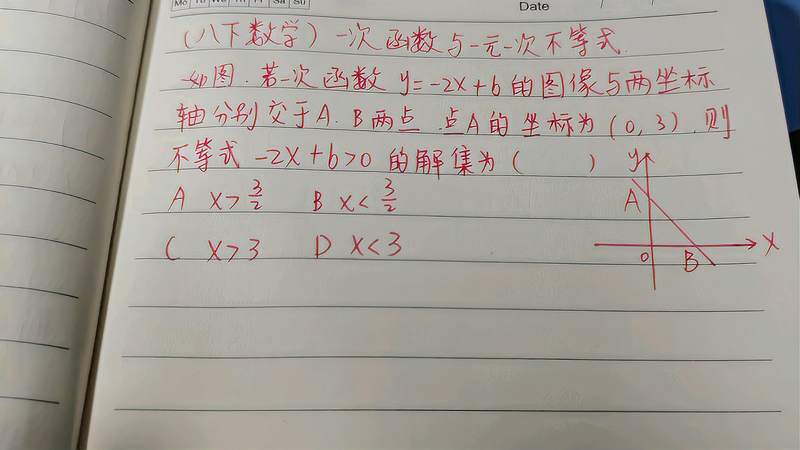 Mo Tu We Th Fr Sa Su
Date
(八下数学) 一次函数与一元一次不等式.
如图.若一次函数 y=-2x+b的图像与两坐标
轴分别交于A.B两点.点A的坐标为(0,3).则
不等式-2x+b>0的解集为( )
A x>3/2 B x<3/2
C x>3 D x<3
y
A
O
B
X